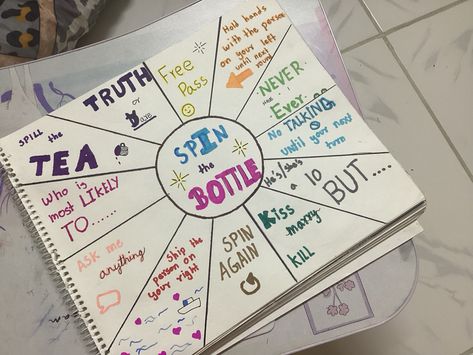 SPIN
the
BOTTLE
TRUTH
or
Dare
Free
Pass
Hold hands
with the person
on your left
until next
round
NEVER
Have I
Ever
No TALKING
until your next
turn
He's/She's
a 10
BUT.....
Kiss
marry
KILL
SPIN
AGAIN
Ship the
person on
your right
ASK me
anything
Who is
most LIKELY
TO......
SPILL the
TEA